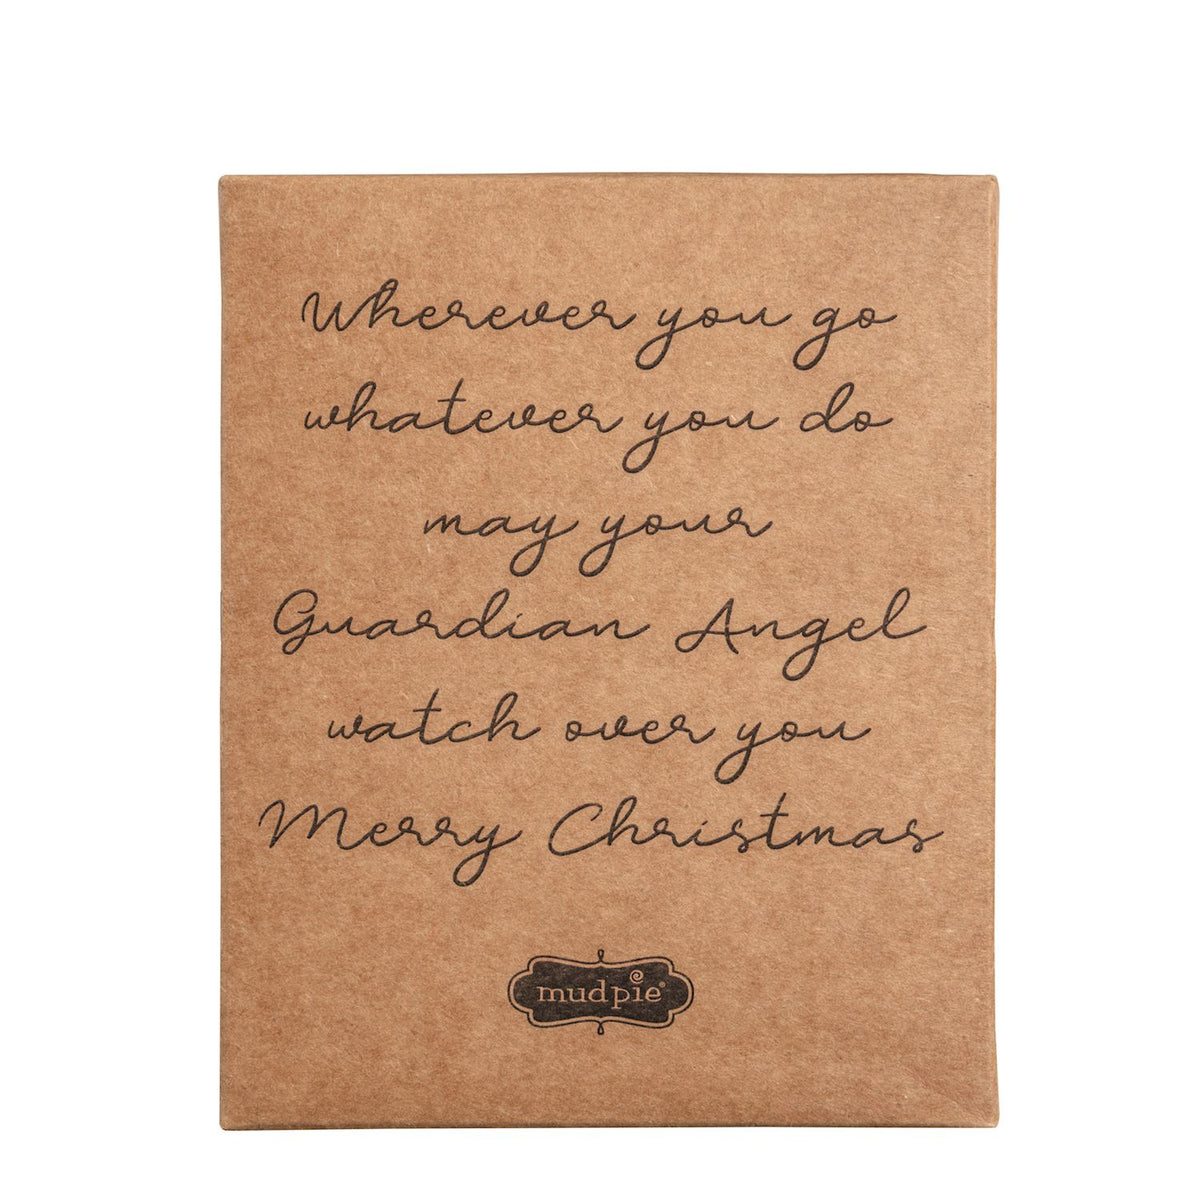 Wherever you go
whatever you do
may your
Guardian Angel
watch over you
Merry Christmas
mudpie®